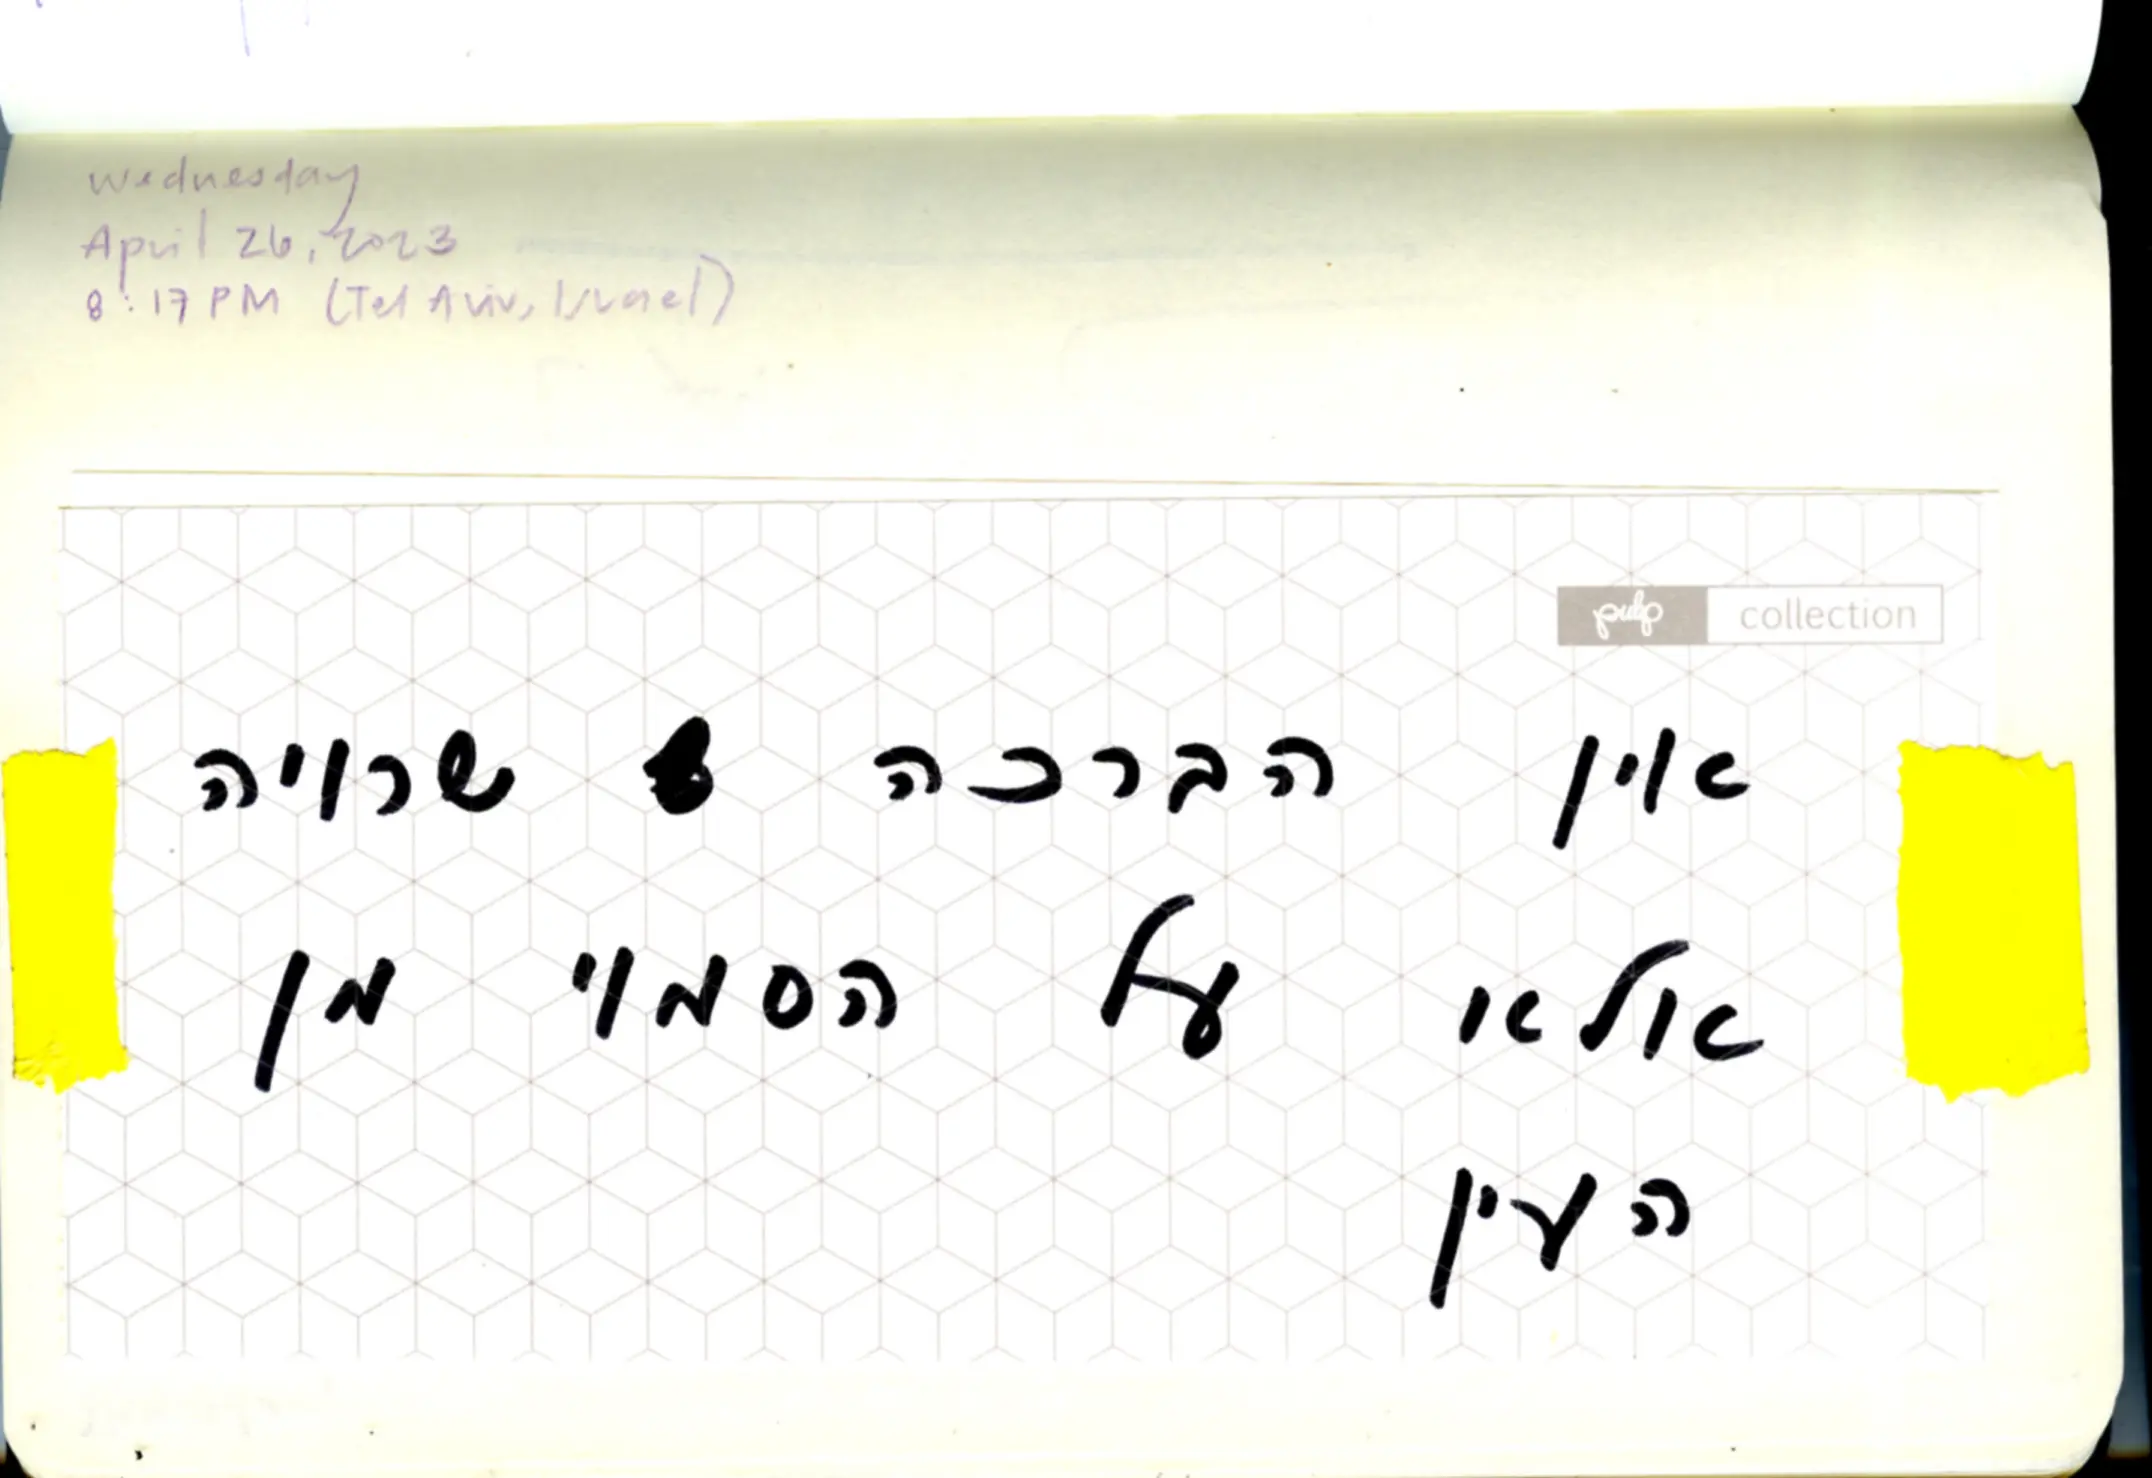 Wednesday
April 26, 2023
8:17 PM (Tel Aviv, Israel)
pulp collection
אין הברכה שרויה
אלא על הסמוי מן
העין